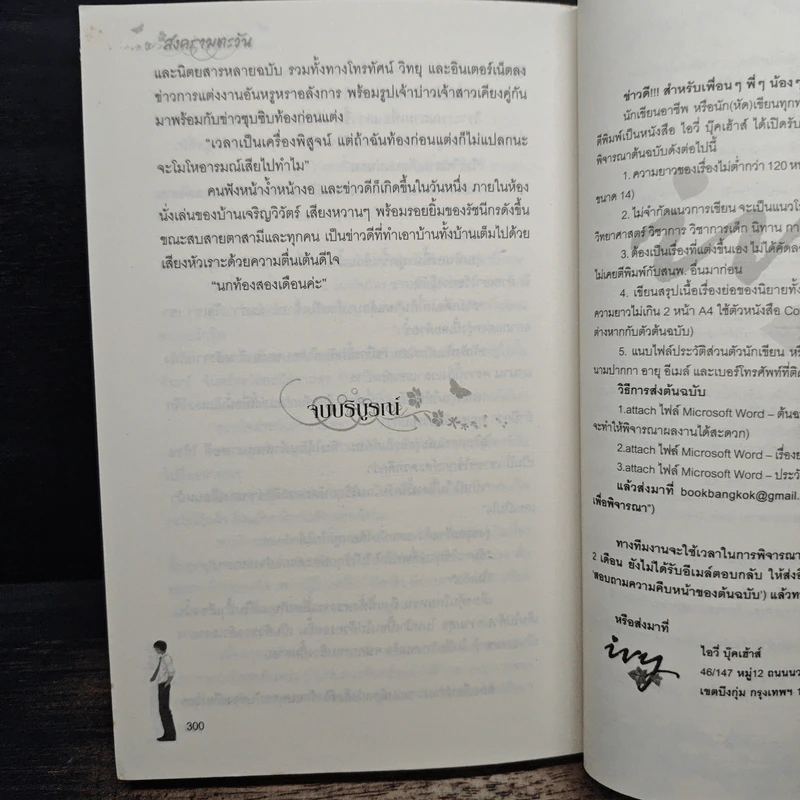 สงครามตะวัน
และนิตยสารหลายฉบับ รวมทั้งทางโทรทัศน์ วิทยุ และอินเตอร์เน็ตลง
ข่าวการแต่งงานอันหรูหราอลังการ พร้อมรูปเจ้าบ่าวเจ้าสาวเคียงคู่กัน
มาพร้อมกับข่าวซุบซิบท้องก่อนแต่ง
“เวลาเป็นเครื่องพิสูจน์ แต่ถ้าฉันท้องก่อนแต่งก็ไม่แปลกนะ
จะโมโหอารมณ์เสียไปทำไม”
คนฟังหน้าง้ำหน้างอ และข่าวดีก็เกิดขึ้นในวันหนึ่ง ภายในห้อง
นั่งเล่นของบ้านเจริญวิวัตร์ เสียงหวานๆ พร้อมรอยยิ้มของรัชนีกรดังขึ้น
ขณะสบสายตาสามีและทุกคน เป็นข่าวดีที่ทำเอาบ้านทั้งบ้านเต็มไปด้วย
เสียงหัวเราะด้วยความตื่นเต้นดีใจ
“นกท้องสองเดือนค่ะ”
จบบริบูรณ์
300
ข่าวดี!!! สำหรับเพื่อนๆ พี่ๆ น้องๆ
นักเขียนอาชีพ หรือนัก(หัด)เขียนทุกท
ตีพิมพ์เป็นหนังสือ ไอวี่ บุ๊คเฮ้าส์ ได้เปิดรับ
พิจารณาต้นฉบับดังต่อไปนี้
1. ความยาวของเรื่องไม่ต่ำกว่า 120 ห
ขนาด 14)
2. ไม่จำกัดแนวการเขียน จะเป็นแนวโ
วิทยาศาสตร์ วิชาการ วิชาการเด็ก นิทาน กา
3. ต้องเป็นเรื่องที่แต่งขึ้นเอง ไม่ได้คัดล
ไม่เคยตีพิมพ์กับสนพ. อื่นมาก่อน
4. เขียนสรุปเนื้อเรื่องย่อของนิยายทั้ง
ความยาวไม่เกิน 2 หน้า A4 ใช้ตัวหนังสือ Co
ต่างหากกับตัวต้นฉบับ)
5. แนบไฟล์ประวัติส่วนตัวนักเขียน ห
นามปากกา อายุ อีเมล์ และเบอร์โทรศัพท์ที่ติ
วิธีการส่งต้นฉบับ
1.attach ไฟล์ Microsoft Word – ต้น
จะทำให้พิจารณาผลงานได้สะดวก)
2.attach ไฟล์ Microsoft Word – เรื่อง
3.attach ไฟล์ Microsoft Word – ประวั
แล้วส่งมาที่ bookbangkok@gmail.
เพื่อพิจารณา")
ทางทีมงานจะใช้เวลาในการพิจารณา
2 เดือน ยังไม่ได้รับอีเมล์ตอบกลับ ให้ส่งอี
'สอบถามความคืบหน้าของต้นฉบับ') แล้วท
หรือส่งมาที่
ivy
ไอวี่ บุ๊คเฮ้าส์
46/147 หมู่12 ถนนนว
เขตบึงกุ่ม กรุงเทพฯ 1